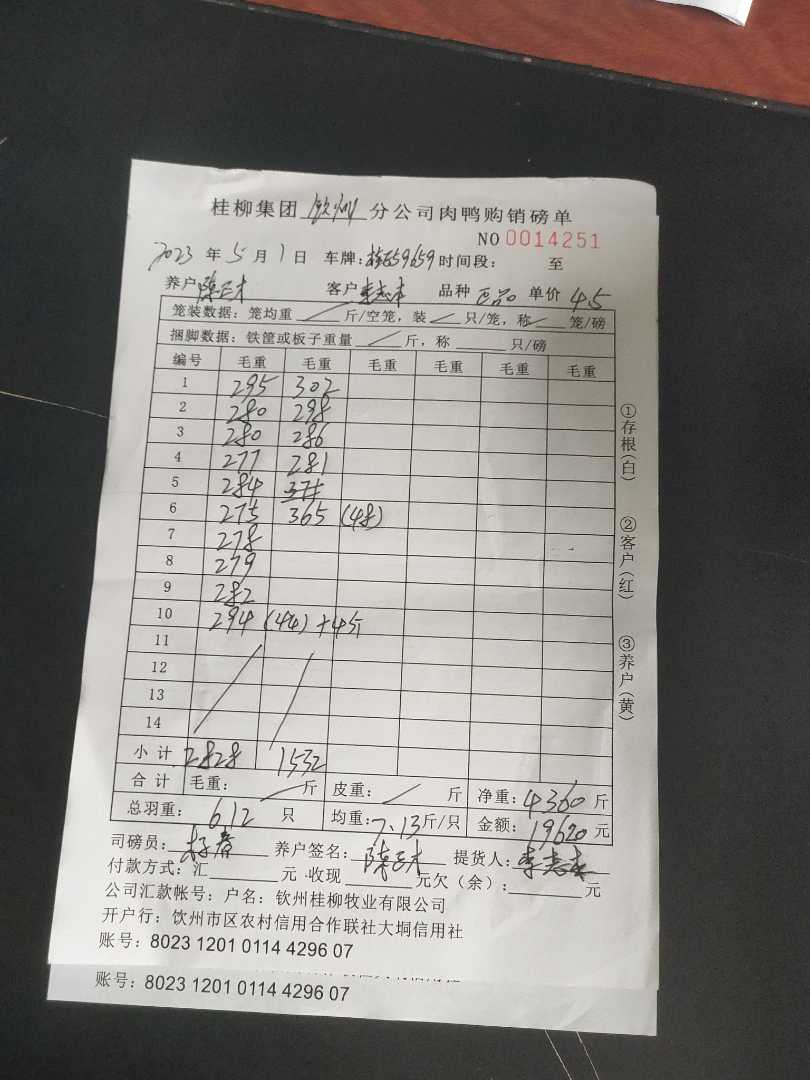 桂柳集团 钦州 分公司肉鸭购销磅单
NO 0014251
2023 年 5 月 1 日 车牌: 59659 时间段: 至
养户 陈三木 客户 李志本 品种 单价 4.5
笼装数据: 笼均重 / 斤/空笼, 装 / 只/笼, 称 / 笼/磅
捆脚数据: 铁筐或板子重量 / 斤, 称 只/磅
编号 毛重 毛重 毛重 毛重 毛重 毛重
1 295 302
2 280 298
3 280 286
4 277 281
5 284
6 275 365 (48)
7 278
8 279
9 282
10 294 (44) +4斤
11
12
13
14
小计 2828 1532
合计 毛重: / 斤 皮重: / 斤 净重: 4360 斤
总羽重: 612 只 均重: 7.13 斤/只 金额: 19620 元
司磅员: 养户签名: 陈三木 提货人: 李志本
付款方式: 汇 元 收现 元欠(余): 元
公司汇款帐号: 户名: 钦州桂柳牧业有限公司
开户行: 钦州市区农村信用合作联社大垌信用社
账号: 8023 1201 0114 4296 07
账号: 8023 1201 0114 4296 07
①存根(白)
②客户(红)
③养户(黄)